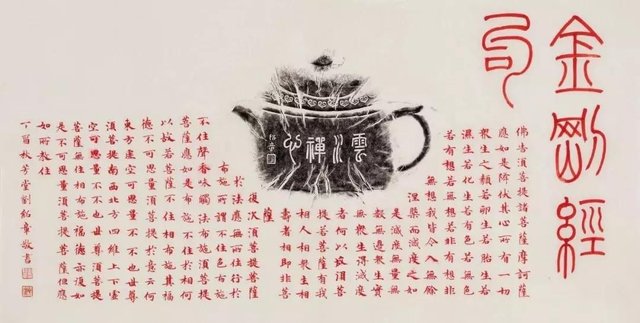 金剛經
句
佛告須菩提諸菩薩摩訶薩
應如是降伏其心所有一切
衆生之類若卵生若胎生若
濕生若化生若有色若無色
若有想若無想若非有想非
無想我皆令入無餘
涅槃而滅度之如
是滅度無量無
數無邊衆生實
無衆生得滅度
者何以故須菩
提若菩薩有我
相人相衆生相
壽者相即非菩
薩
復次須菩提菩薩
於法應無所住行於
布施所謂不住色布施
不住聲香味觸法布施須菩提
菩薩應如是布施不住於相何
以故若菩薩不住相布施其福
德不可思量須菩提於意云何
東方虛空可思量不不也世尊
須菩提南西北方四維上下虛
空可思量不不也世尊須菩提
菩薩無住相布施福德亦復如
是不可思量須菩提菩薩但應
如所教住
丁酉秋芳堂劉紹章敬書
雲水禪心
紹章